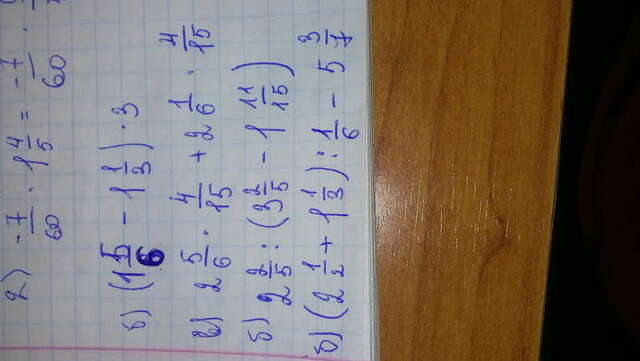 2) -7/60 · 1 4/5 = -7/60 ·
б) (1 5/6 - 1 1/3) · 3
в) 2 5/6 · 4/15 + 2 1/6 · 4/15
б) 2 2/5 : (3 2/5 - 1 11/15)
б) (2 1/2 + 1 1/3) : 1/6 - 5 3/7